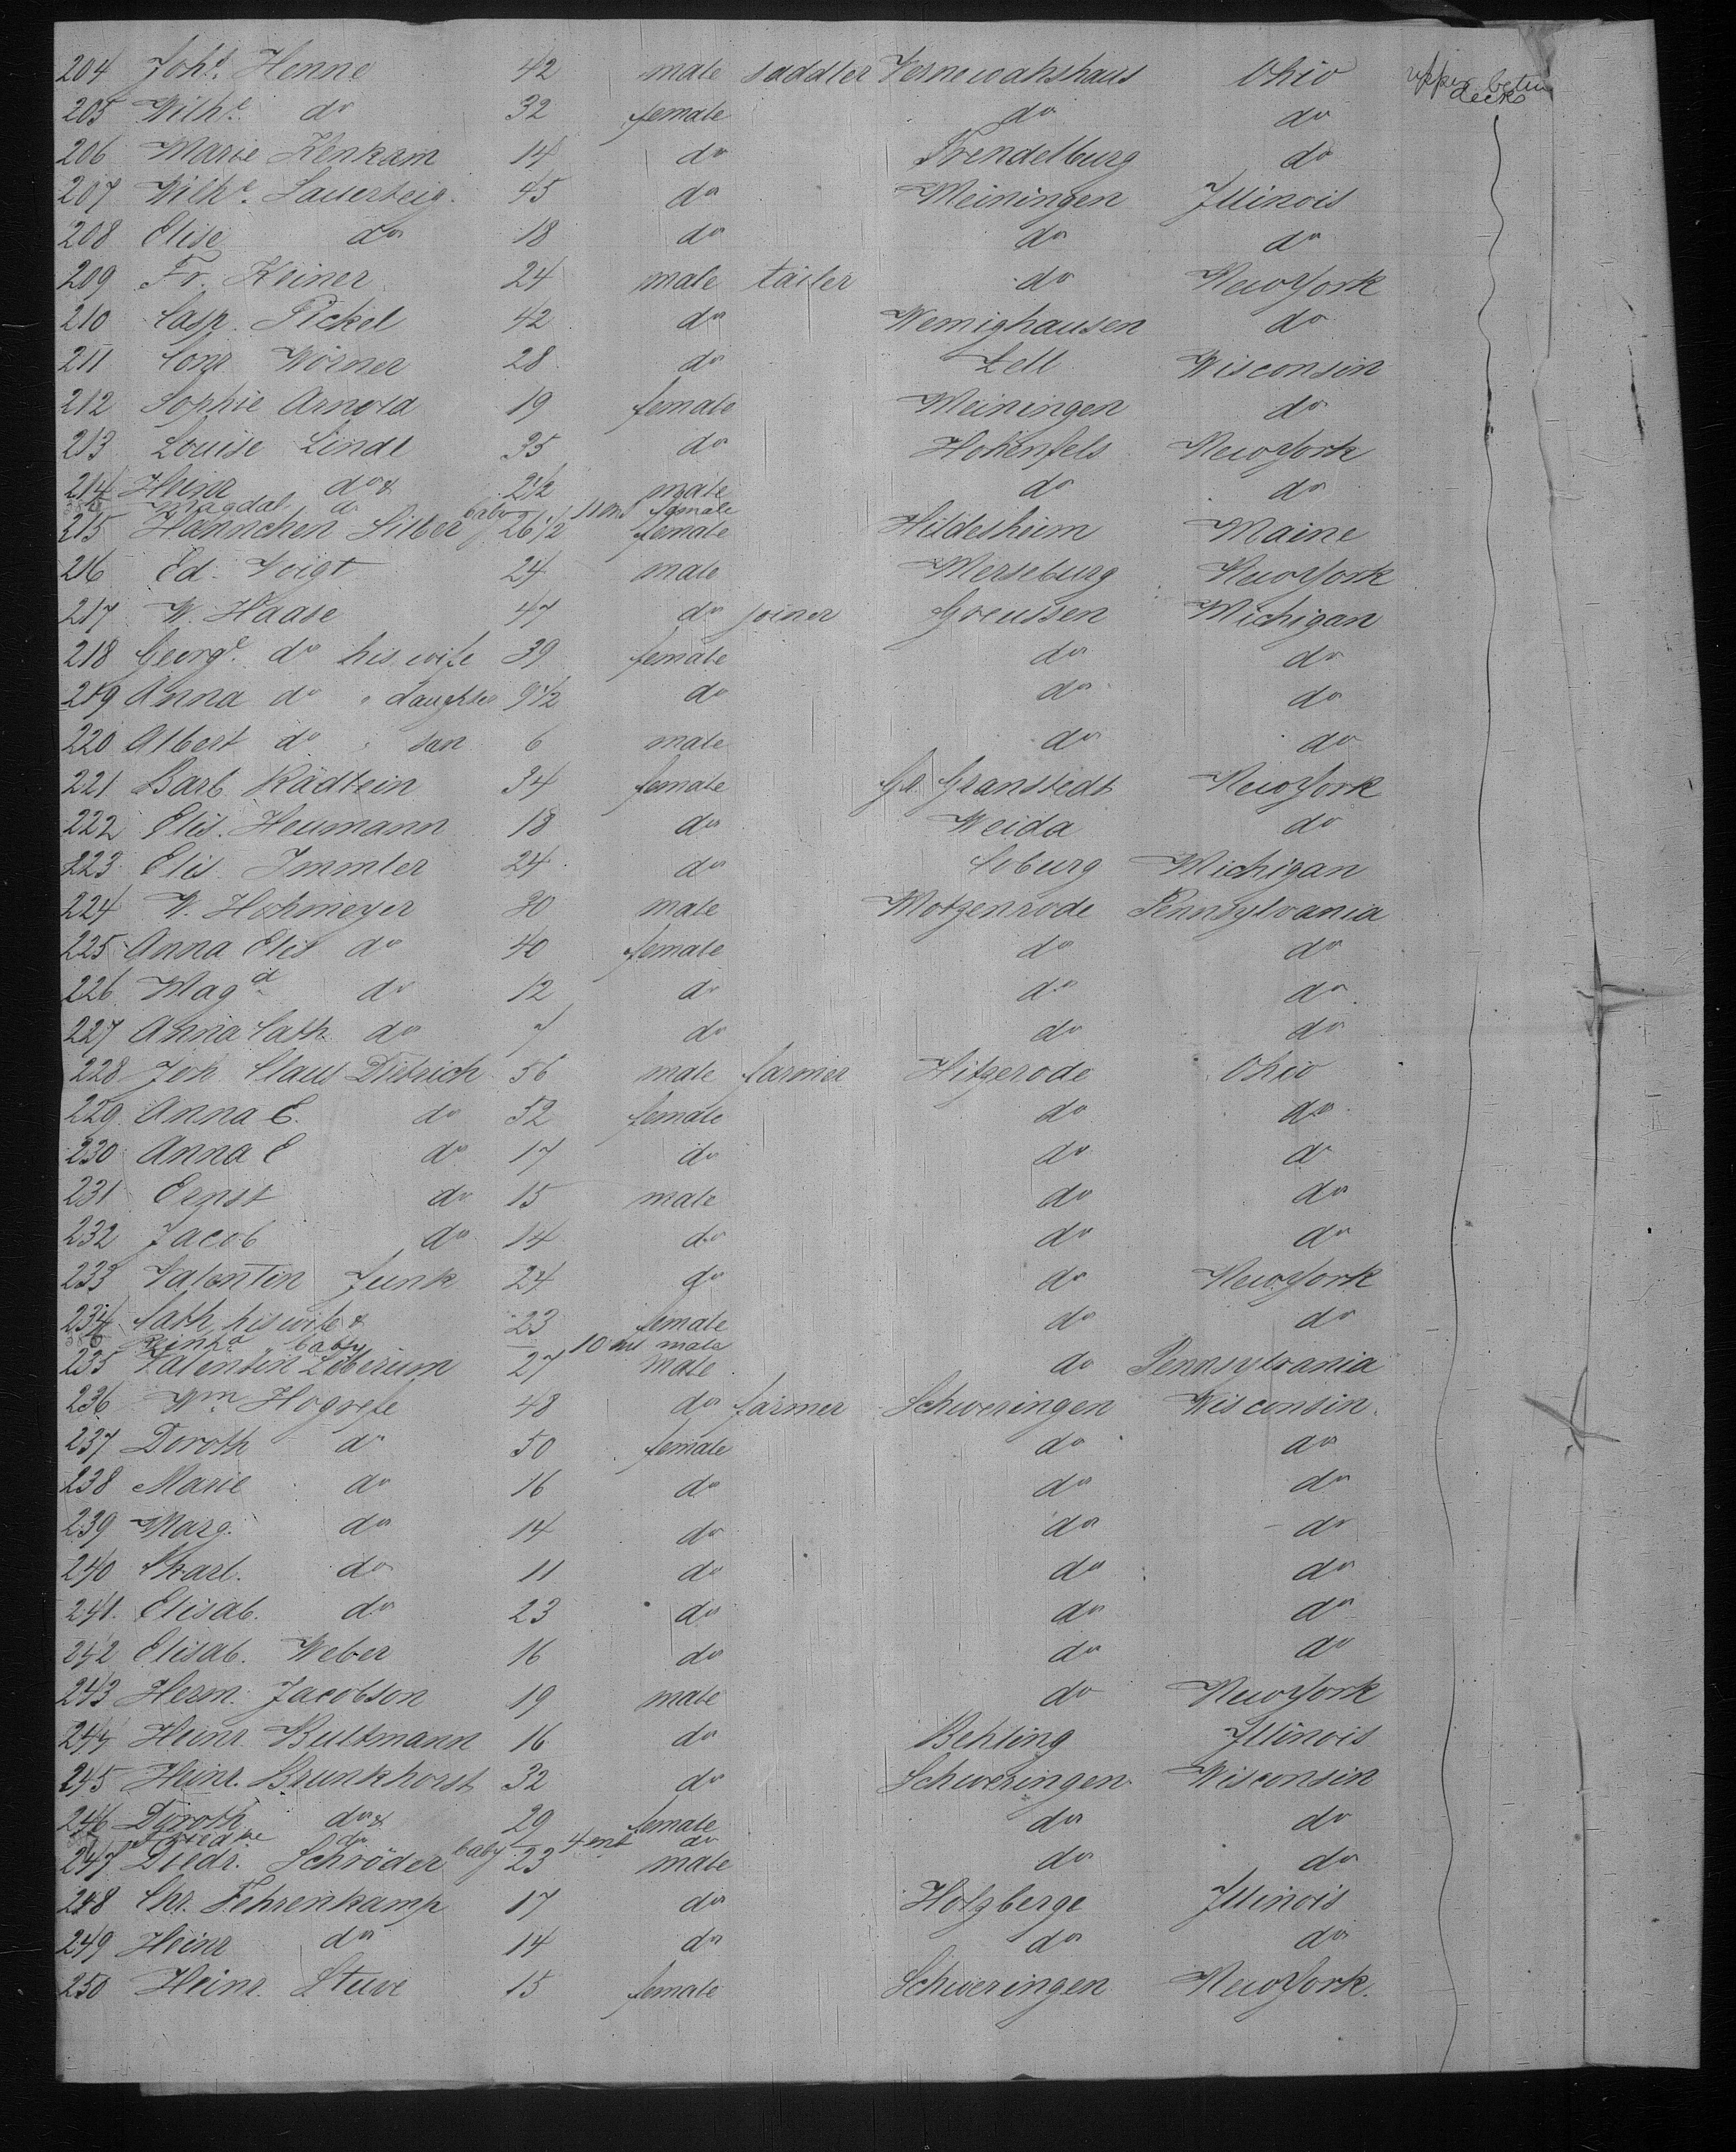 204 Joh.s Henne 42 male saddler Vernewahshaus Ohio upper betw decks
205 Wilh.e do 32 female do do
206 Marie Kenkam 14 do Trendelburg do
207 Wilh.e Sauerteig 45 do Meiningen Illinois
208 Elise do 18 do do do
209 Fr. Keiner 24 male tailer do New York
210 Casp. Pickel 42 do Wemighausen do
211 Conr Wörner 28 do Zell Wisconsin
212 Sophie Arnold 19 female Meiningen do
213 Louise Linde 35 do Hohenfels New York
214 Heinr do & 2 1/2 male do do
Magdal. do baby 11 m female
215 Hännchen Silber 26 1/2 female Hildesheim Maine
216 Ed. Voigt 24 male Merseburg New York
217 W. Haase 47 do joiner Greussen Michigan
218 Georg.e do his wife 39 female do do
219 Anna do " daughter 9 1/2 do do do
220 Albert do " son 6 male do do
221 Barb. Rädlein 34 female Gr Granstedt New York
222 Elis. Heumann 18 do Weida do
223 Elis. Immler 24 do Coburg Michigan
224 W. Hohmeyer 30 male Motzenrode Pennsylvania
225 Anna Elis do 40 female do do
226 Mag.d do 12 do do do
227 Anna Cath do 7 do do do
228 Joh. Claus Dietrich 56 male farmer Hitzerode Ohio
229 Anna E. do 52 female do do
230 Anna E do 17 do do do
231 Ernst do 15 male do do
232 Jacob do 14 do do do
233 Valentin Junk 24 do do New York
234 Cath his wife & 23 female do do
baby 10 m male
235 Valentin Liberium 27 male do Pennsylvania
236 Wm Hogrefe 48 do farmer Schweringen Wisconsin
237 Doroth do 50 female do do
238 Marie do 16 do do do
239 Marg. do 14 do do do
240 Charl. do 11 do do do
241. Elisab. do 23 do do do
242 Elisab. Weber 16 do do do
243 Herm. Jacobson 19 male do New York
244 Heinr. Bultmann 16 do Behling Illinois
245 Heinr. Brunkhorst 32 do Schweringen Wisconsin
246 Doroth do & 29 female do do
Fried.ke do baby 4 mt do
247 Diedr. Schröder 23 male do do
248 Chr. Fehrenkamp 17 do Holzberge Illinois
249 Heinr do 14 do do do
250 Heinr. Stuve 15 female Schweringen New York.